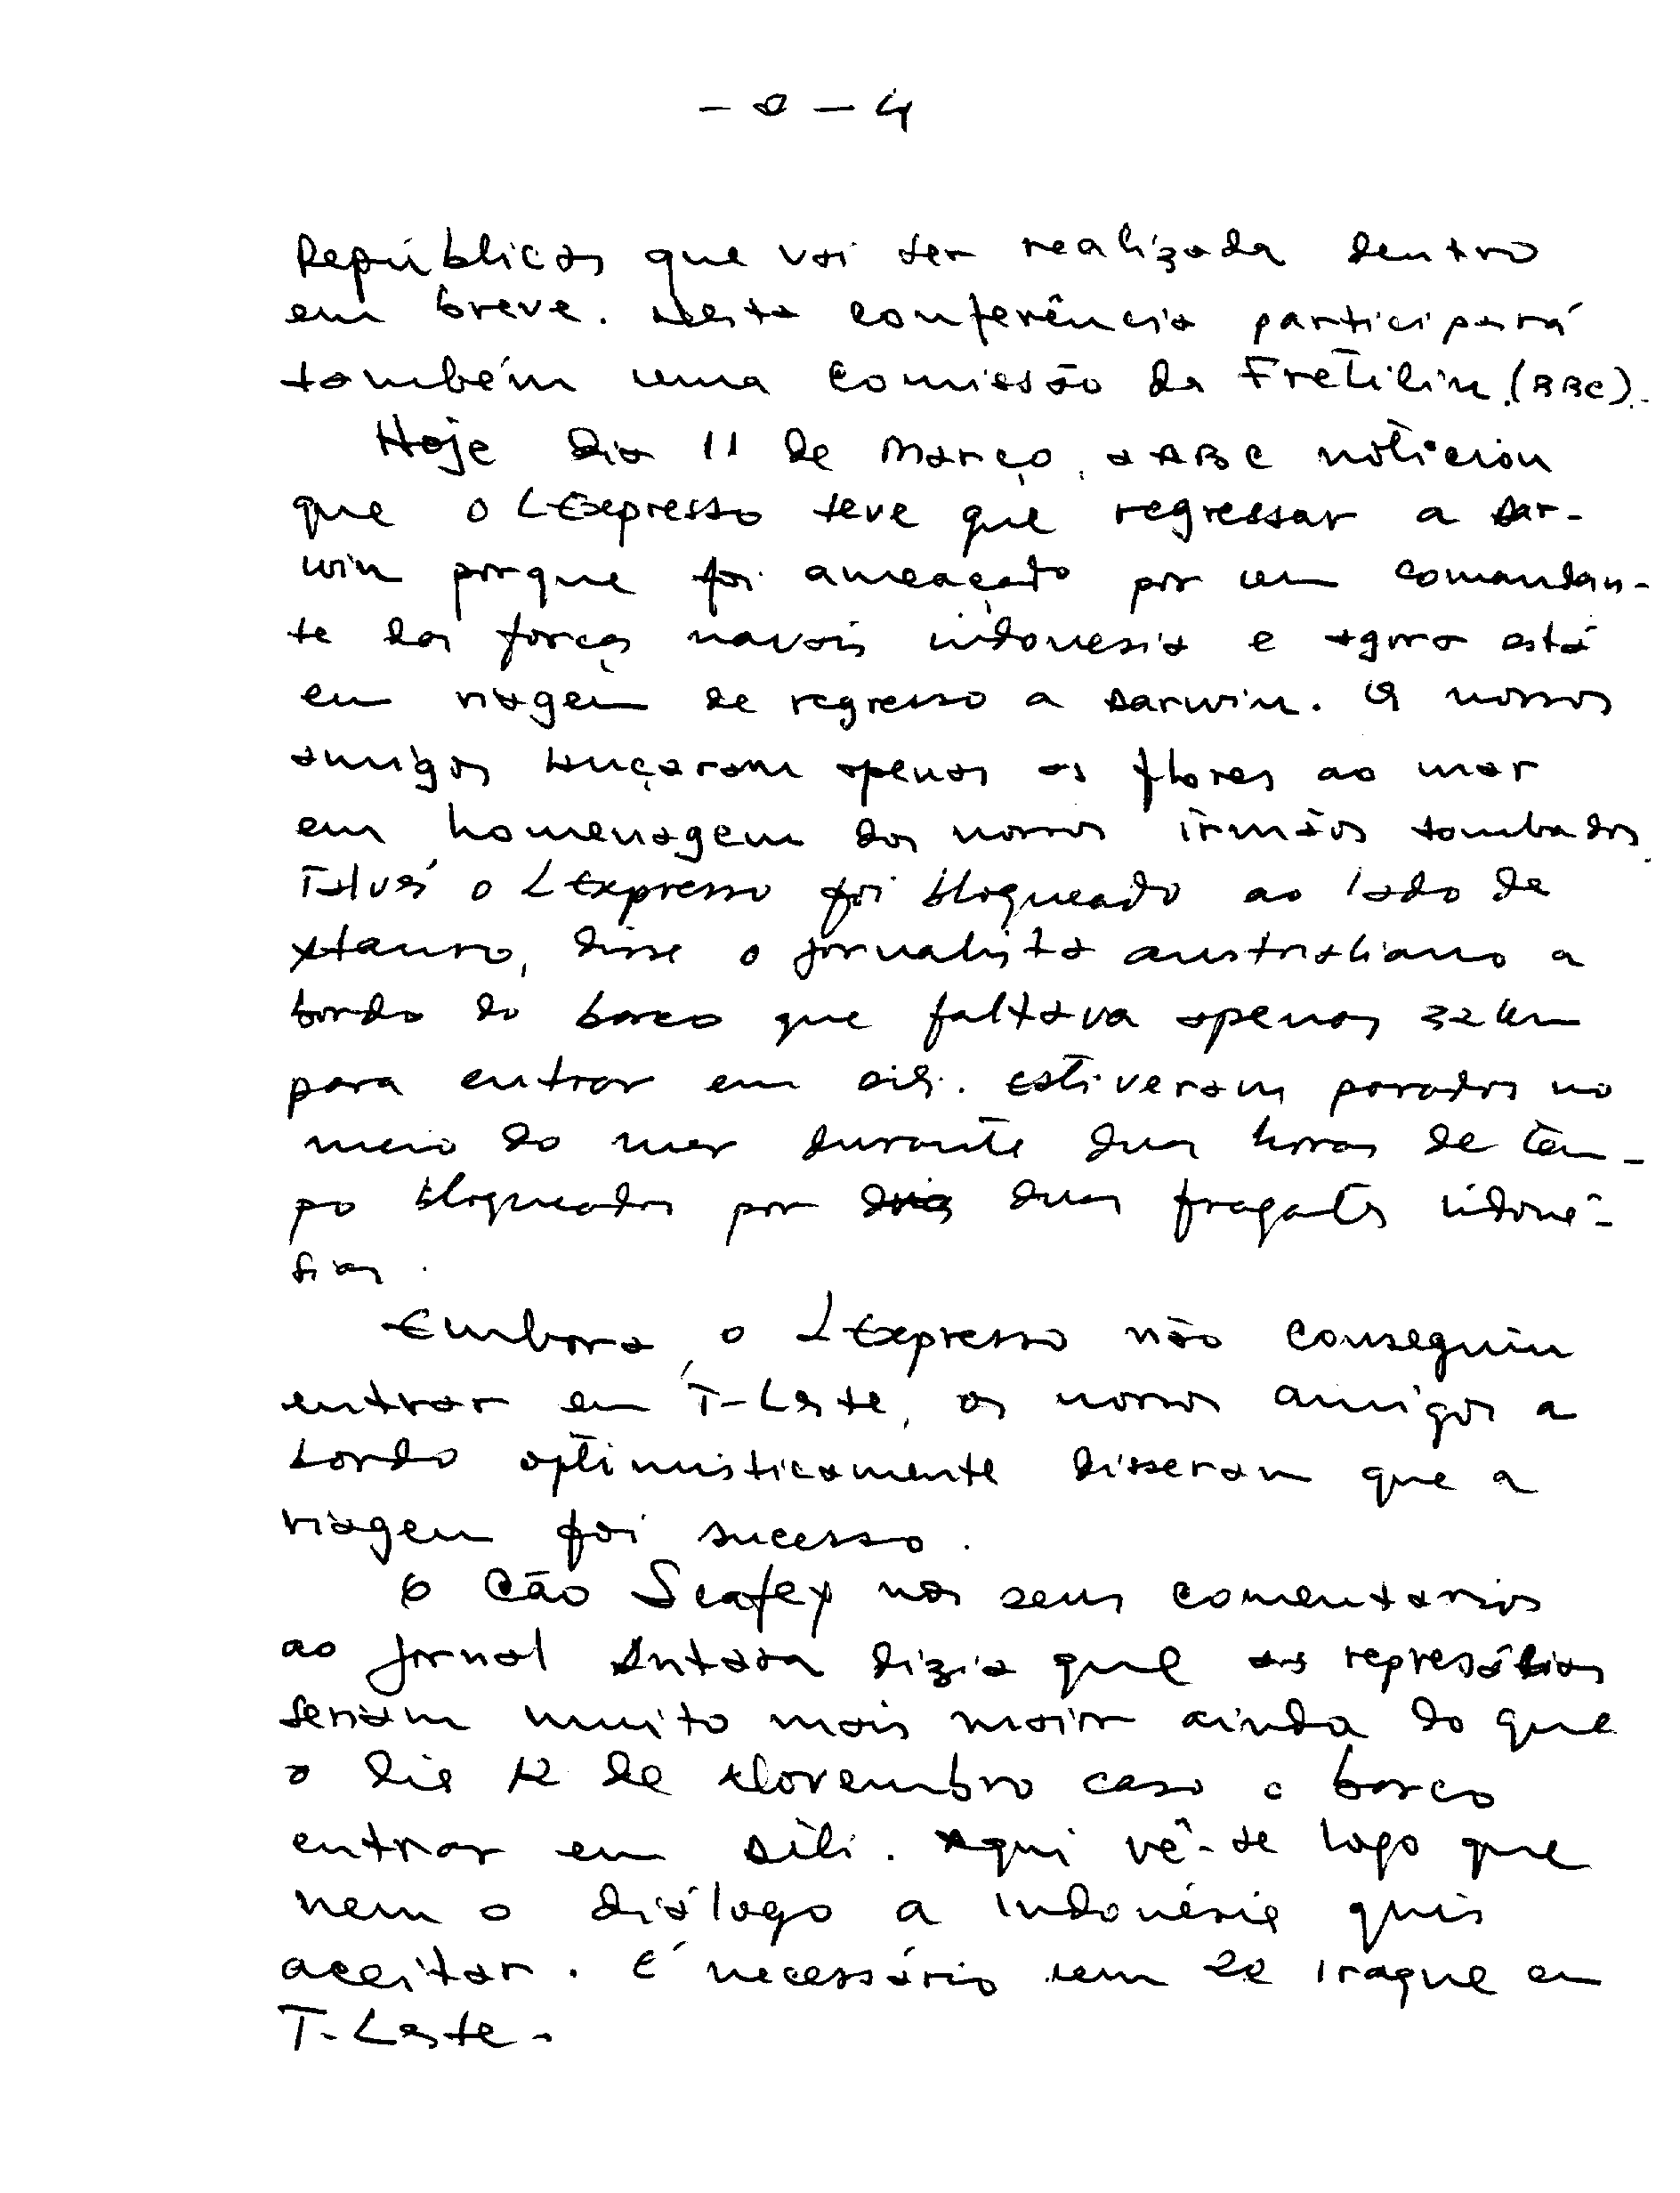 - 0 - 4
Repúblicas que vai ser realizada dentro
em breve. Nesta conferência participará
também uma comissão da Fretilin. (BBC).
Hoje dia 11 de Março, a ABC noticiou
que o LExpresso teve que regressar a Dar-
win porque foi ameaçado por um comandan-
te das forças navais indonesia e agora está
em viagem de regresso a Darwin. Os nossos
amigos lançaram apenas as flores ao mar
em homenagem dos nossos irmãos tombados.
Talvés o LExpresso foi bloqueado ao lado de
Atauro, disse o jornalista australiano a
bordo do barco que faltava apenas 32 km
para entrar em Dili. Estiveram parados no
meio do mar durante duas horas de tem-
po bloqueados por duas fragatas indoné-
sias.
Embora, o LExpresso não conseguiu
entrar em T-Leste, os nossos amigos a
bordo optimisticamente disseram que a
viagem foi sucesso.
O Cão nos seus comentarios
ao jornal Antara dizia que as represálias
seriam muito mais maior ainda do que
o dia 12 de Novembro caso o barco
entrar em Dili. Aqui vê-se logo que
nem o diálogo a Indonésia quis
aceitar. É necessário um 2º Iraque em
T-Leste.